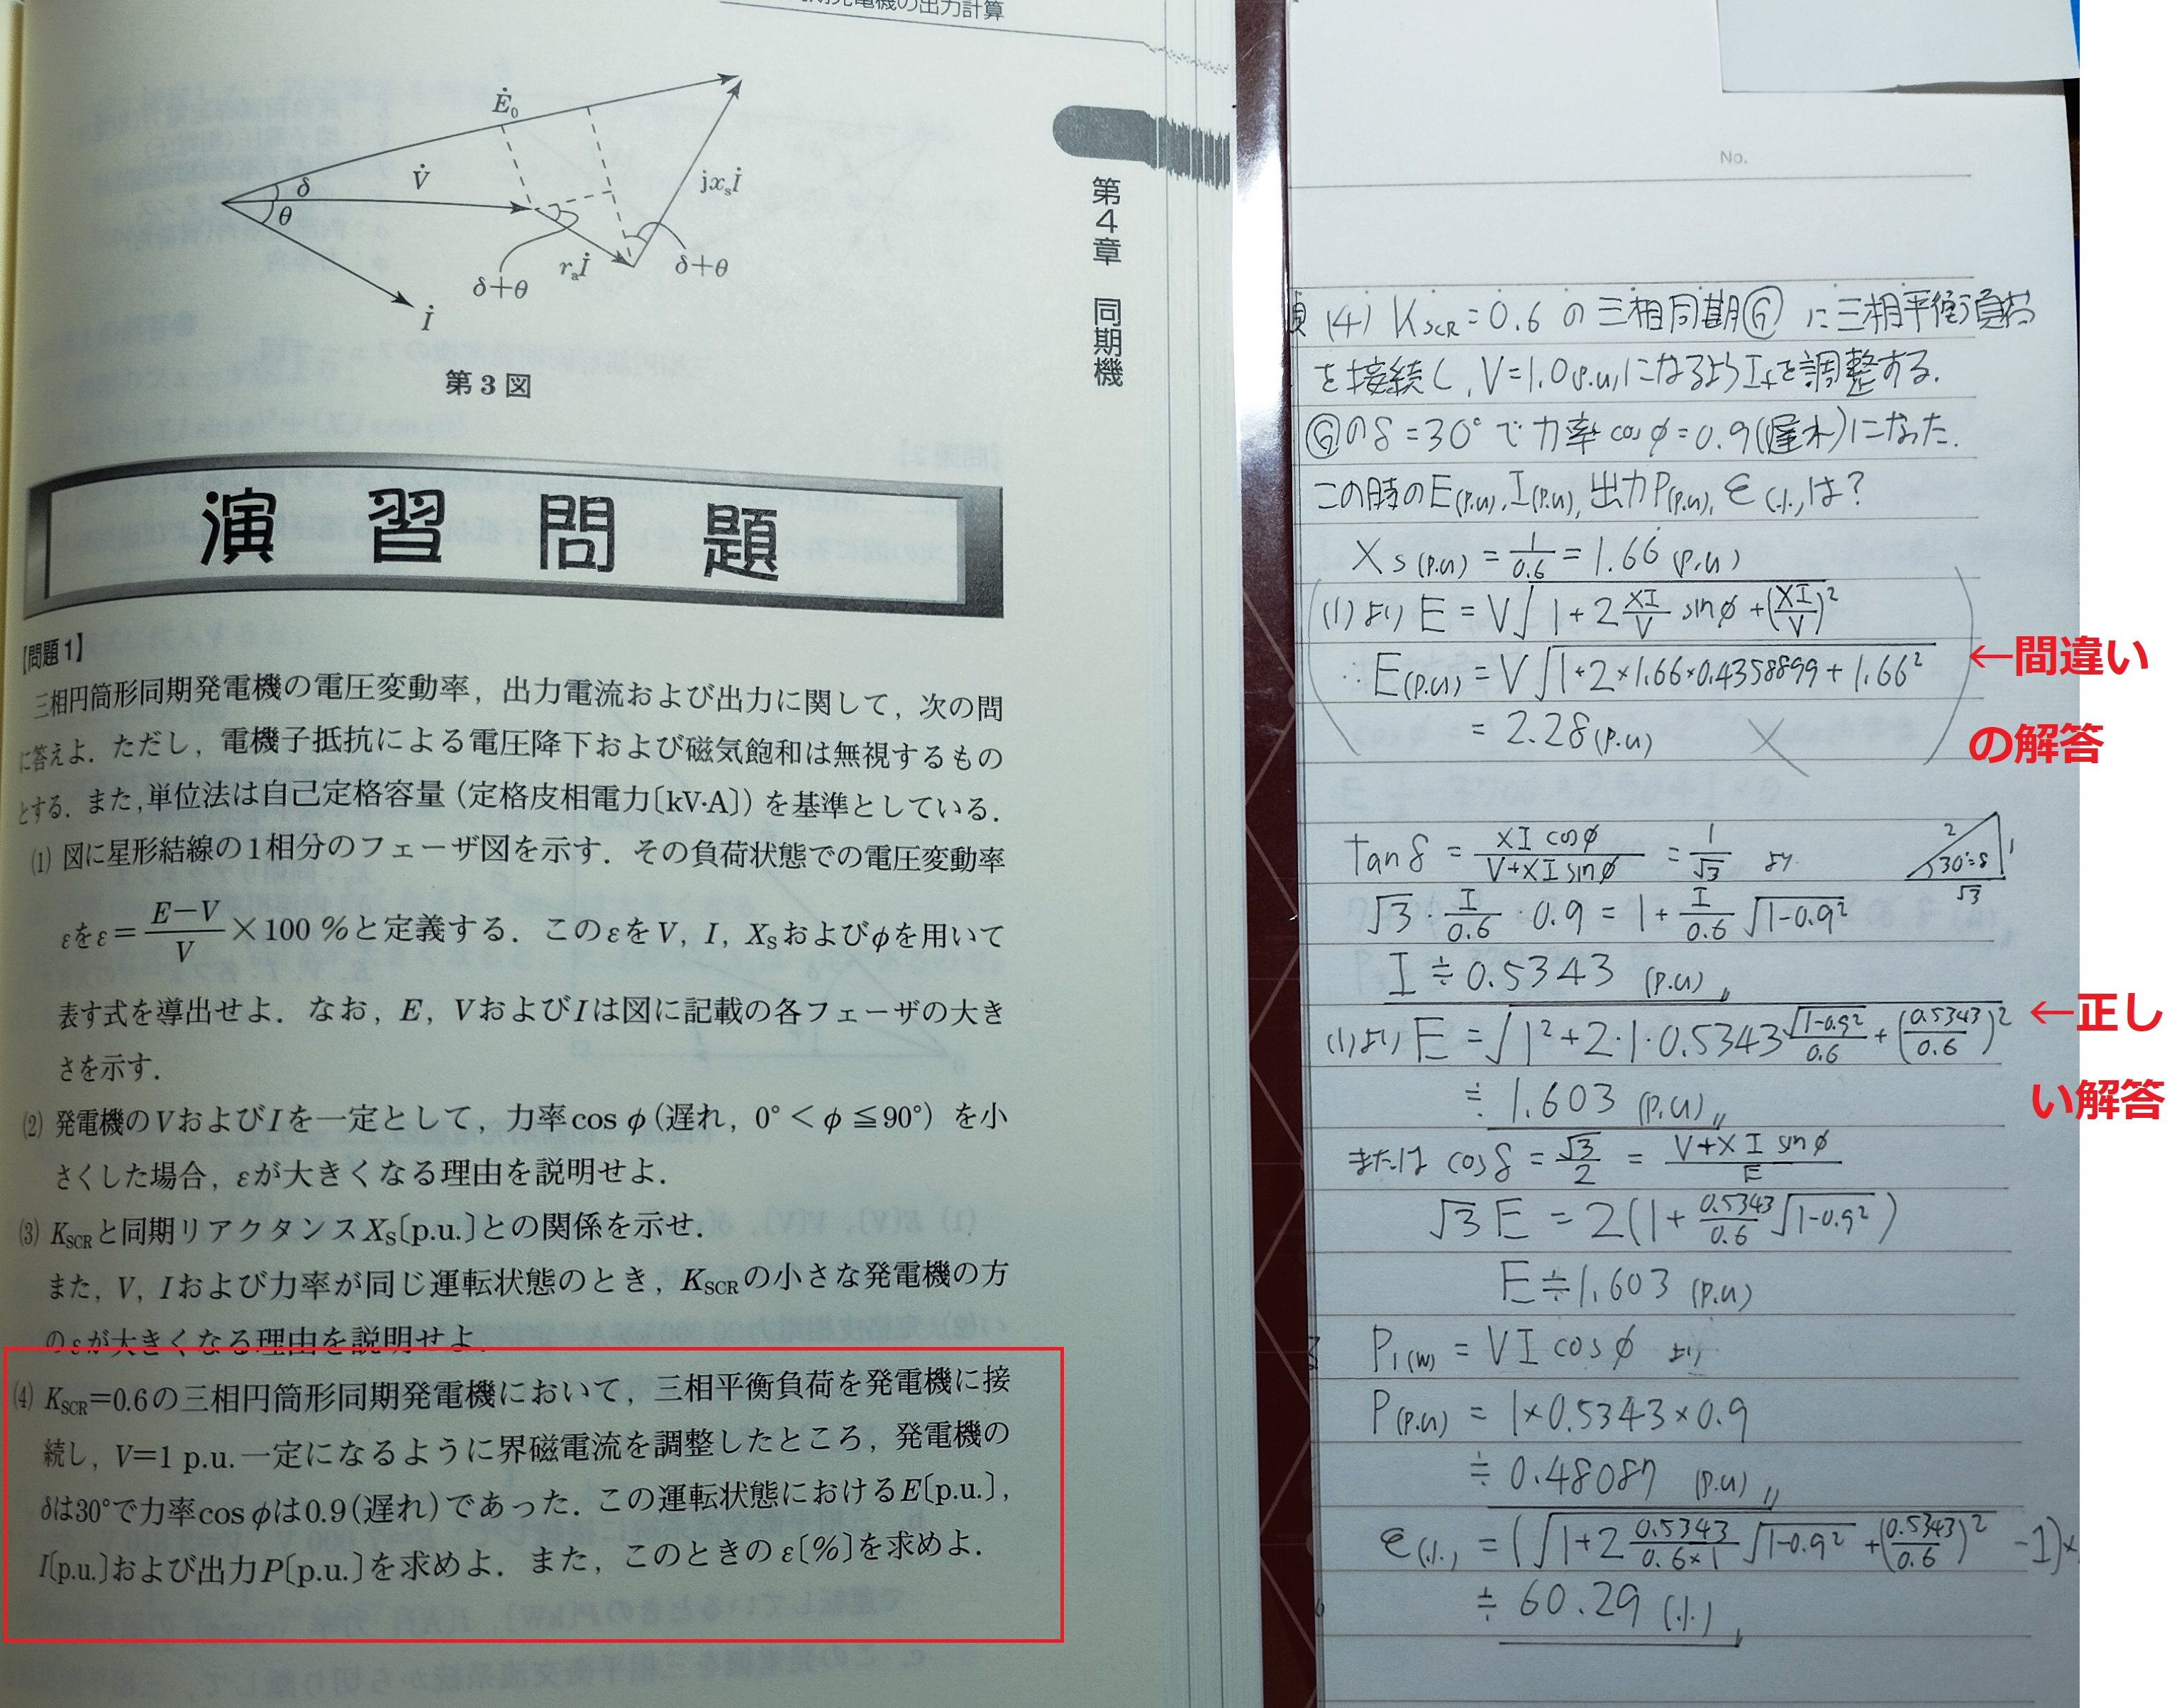 同期発電機の出力計算
Ė₀
δ
V̇
θ
jxₛİ
δ+θ
rₐİ
δ+θ
İ
第3図
第4章 同期機
演習問題
【問題1】
三相円筒形同期発電機の電圧変動率，出力電流および出力に関して，次の問
に答えよ．ただし，電機子抵抗による電圧降下および磁気飽和は無視するもの
とする．また，単位法は自己定格容量（定格皮相電力〔kV·A〕）を基準としている．
(1) 図に星形結線の1相分のフェーザ図を示す．その負荷状態での電圧変動率
εをε=(E−V)/V×100 %と定義する．このεをV，I，XSおよびφを用いて
表す式を導出せよ．なお，E，VおよびIは図に記載の各フェーザの大き
さを示す．
(2) 発電機のVおよびIを一定として，力率cos φ（遅れ，0°＜φ≦90°）を小
さくした場合，εが大きくなる理由を説明せよ．
(3) KSCRと同期リアクタンスXS〔p.u.〕との関係を示せ．
また，V，Iおよび力率が同じ運転状態のとき，KSCRの小さな発電機の方
のεが大きくなる理由を説明せよ．
(4) KSCR=0.6の三相円筒形同期発電機において，三相平衡負荷を発電機に接
続し，V=1 p.u.一定になるように界磁電流を調整したところ，発電機の
δは30°で力率cos φは0.9（遅れ）であった．この運転状態におけるE〔p.u.〕，
I〔p.u.〕および出力P〔p.u.〕を求めよ．また，このときのε〔%〕を求めよ．
No.
(4) KSCR=0.6 の三相同期Ⓖ に三相平衡負荷
を接続し, V=1.0(p.u)になるようIfを調整する.
Ⓖのδ=30°で力率cosφ=0.9(遅れ)になった.
この時のE(p.u), I(p.u), 出力P(p.u), ε(%)は?
Xs(p.u) = 1/0.6 = 1.66 (p.u)
(1)より E = V√(1+2 XI/V sinφ+(XI/V)²)
∴E(p.u) = V√(1+2×1.66×0.4358899+1.66²)
= 2.28(p.u) ×
←間違い
の解答
tanδ = XI cosφ/(V+XI sinφ) = 1/√3 より
2 1 30°=δ √3
√3・I/0.6・0.9 = 1+I/0.6 √(1-0.9²)
I ≒ 0.5343 (p.u)〃
(1)より E = √(1²+2・1・0.5343 √(1-0.9²)/0.6+(0.5343/0.6)²)
←正し
い解答
≒ 1.603 (p.u)〃
または cosδ = √3/2 = (V+XI sinφ)/E
√3E = 2(1+0.5343/0.6 √(1-0.9²))
E≒1.603 (p.u)
P₁(w) = VI cosφ より
P(p.u) = 1×0.5343×0.9
≒ 0.48087 (p.u)〃
ε(%) = (√(1+2 0.5343/(0.6×1) √(1-0.9²)+(0.5343/0.6)²) -1)×
≒ 60.29 (%)〃